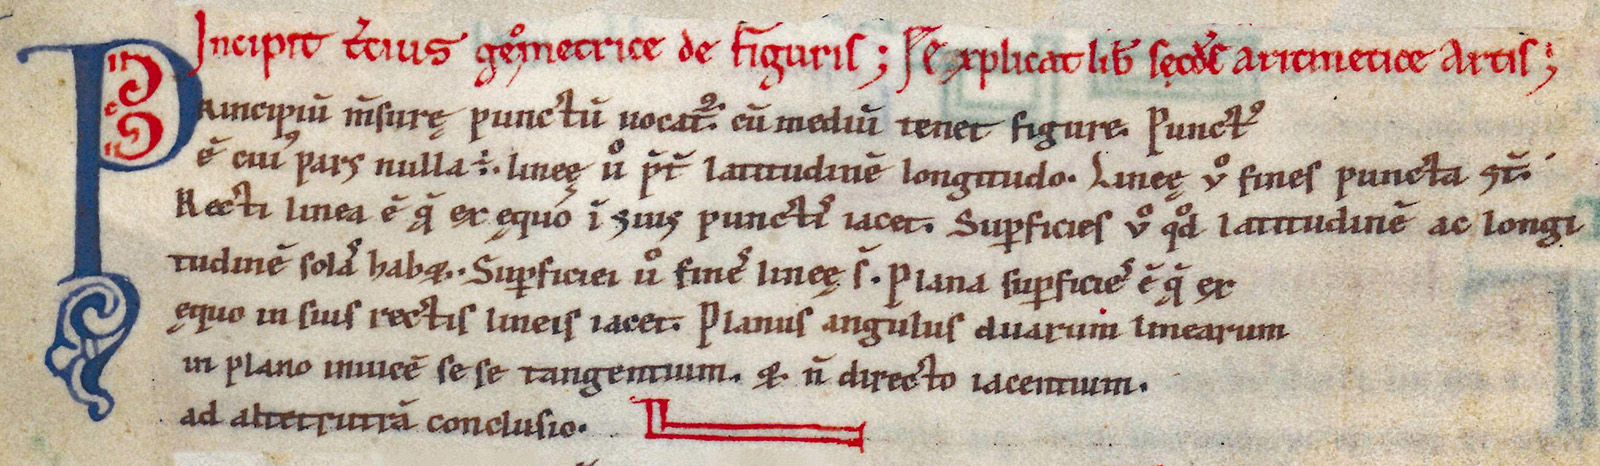 Incipit t̄cius geometrice de figuris; Se explicat lib̄ sec̄ds aritmetice Artis;
Principiū m̄surę punctū uocat᷑. cū mediū tenet figure. Punct᷒
ē cui᷒ pars nulla .÷. lineę ů p̄t̄ latitudinē longitudo. Lineę v̊ fines puncta st̄.
Recti linea ē q̄ ex ęquo ī suis puncti᷒ iacet. Suꝑficies v̊ qd̊ latitudinē ac longi
tudinē solā habꝫ. Suꝑficiei ů fine᷒ lineę s̄. Plana suꝑficie᷒ ē q̄ ex
ęquo in suis rectis lineis iacet. Planus angulus duarum linearum
in plano inuicē se se tangentium. & n̄ directo iacentium.
ad alterutrā conclusio.